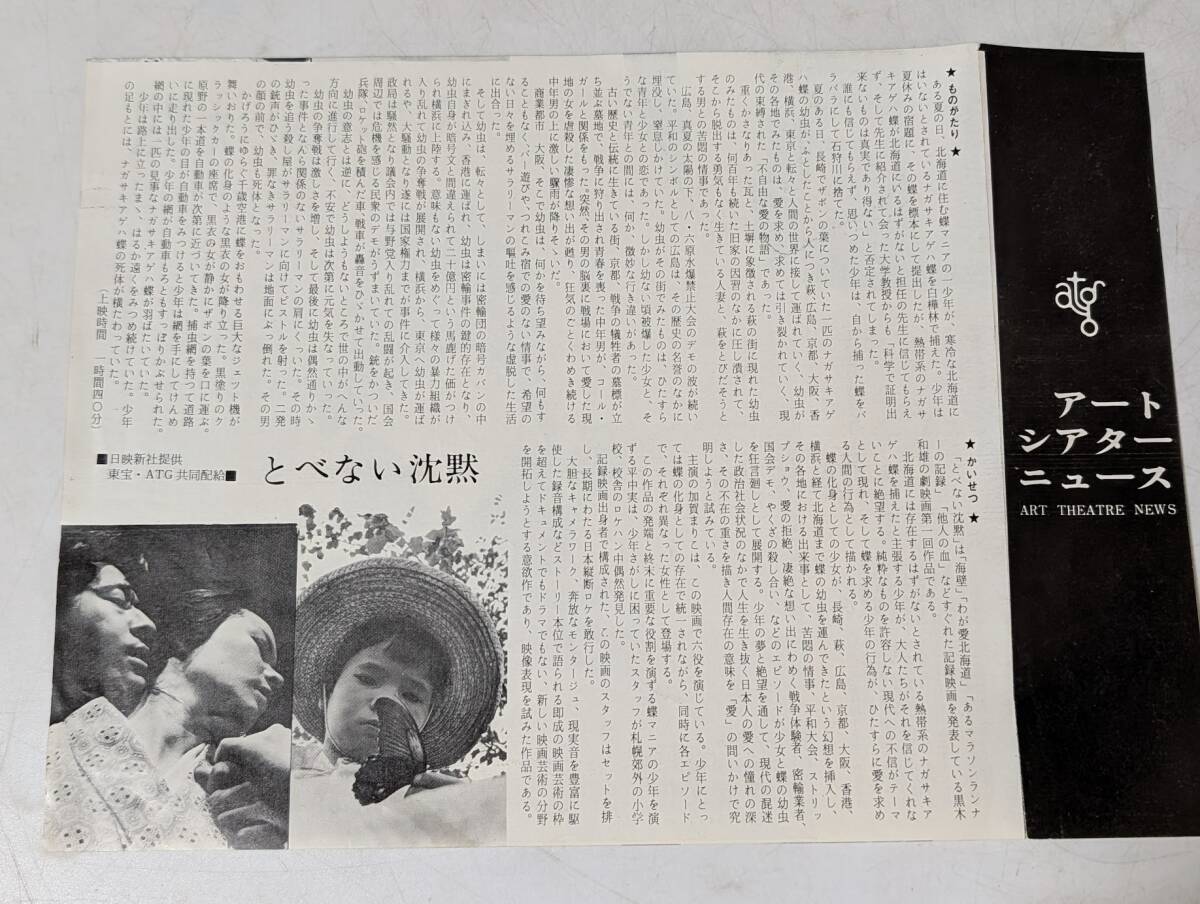 atg
アート
シアター
ニュース
ART THEATRE NEWS
★ものがたり★
ある夏の日、北海道に住む蝶マニアの一少年が、寒冷な北海道に
はいないとされているナガサキアゲハ蝶を白樺林で捕えた。少年は
夏休みの宿題に、その蝶を標本にして提出したが、熱帯系のナガサ
キアゲハ蝶が北海道にいるはずがないと担任の先生に信じてもらえ
ず、そして先生に紹介されて会った大学教授からも「科学で証明出
来ないものは真実であり得ない」と否定されてしまった。
誰にも信じてもらえず、思いつめた少年は、自から捕った蝶をバ
ラバラにして石狩川に捨てた。
夏のある日、長崎でザボンの葉についていた一匹のナガサキアゲ
ハ蝶の幼虫が、ふとしたことから人につき萩、広島、京都、大阪、香
港、横浜、東京と転々と人間の世界に接して運ばれていく、幼虫が
その各地でみたものは、愛を求め、求めては引き裂かれていく、現
代の束縛された「不自由な愛の物語」であった。
重くかさなりあった瓦と、土塀に象徴される萩の街に現れた幼虫
のみたものは、何百年も続いた旧家の因習のなかに圧し潰されて、
そこから脱出する勇気もなく生きている人妻と、萩をとびだそうと
する男との苦悶の情事であった。
広島、真夏の太陽の下、八・六原水爆禁止大会のデモの波が続い
ていた。平和のシンボルとしての広島は、その歴史の名誉のなかに
埋没し、窒息しかけていた。幼虫がその街でみたものは、ひたすら
な青年と少女との恋であった。しかし幼ない頃被爆した少女と、そ
うでない青年との間には、何か、微妙な行き違いがあった。
古い歴史と伝統に生きている街、京都、戦争の犠牲者の墓標が立
ち並ぶ墓地で、戦争に狩り出され青春を喪った中年男が、コール・
ガールと関係をもった。突然、その男の脳裏に戦場において愛した現
地の女を虐殺した凄惨な想い出が甦り、狂気のごとくわめき続ける
中年男の上に激しい驟雨が降りそゝいだ。
商業都市 大阪、そこで幼虫は、何かを待ち望みながら、何もす
ることもなく、バー遊びや、つれこみ宿での愛のない情事で、希望の
ない日々を埋めるサラリーマンの嘔吐を感じるような虚脱した生活
に出合った。
そして幼虫は、転々として、しまいには密輸団の暗号カバンの中
にまぎれ込み、香港に運ばれ、幼虫は密輸事件の鍵的存在となり、
幼虫自身が暗号文と間違えられて二十億円という馬鹿げた価がつけ
られ横浜に上陸する。意味もない幼虫をめぐって様々の暴力組織が
入り乱れて幼虫の争奪戦が展開され、横浜から、東京へ幼虫が運ば
れるや、大騒動となり遂には国家権力までが事件に介入してきた。
政局は騒然となり議会内では与野党入り乱れての乱闘が起き、国会
周辺では危機を感じる民衆のデモがうずまいていた。銃をかついだ
兵隊、ロケット砲を積んだ車、戦車が轟音をひゞかせて出動していった。
幼虫の意志とは逆に、どうしようもないところで世の中がへんな
方向に進行して行く、不安で幼虫は次第に元気を失なっていった。
幼虫の争奪戦は激しさを増し、そして最後に幼虫は偶然通りかゝ
った事件となんら関係のないサラリーマンの肩にくっついた。その時
幼虫を追う殺し屋がサラリーマンに向けてピストルを射った。二発
の銃声がひゞき、罪なきサラリーマンは地面にぶっ倒れた。その男
の顔の前で、幼虫も死体となった。
かげろうにゆらぐ千歳空港に蝶をおもわせる巨大なジェット機が
舞いおりた。蝶の化身のような黒衣の女が降り立った。黒塗りのク
ラッシックカーの座席で、黒衣の女が静かにザボンの葉を口に運ぶ。
原野の一本道を自動車が次第に近づいてきた。捕虫網を持つて道路
に現れた少年の目が自動車をみつけると少年は網を手にしてけんめ
いに走り出した。少年の網が自動車もろともすっぽりかぶせられた。
網の中には一匹の見事なナガサキアゲハ蝶が羽ばたいていた。
少年は路上に立ったまゝ、はるか遠くをみつめ続けていた。少年
の足もとには、ナガサキアゲハ蝶の死体が横たわっていた。
（上映時間 一時間四〇分）
★かいせつ★
「とべない沈黙」は「海壁」「わが愛北海道」「あるマラソンランナ
ーの記録」「他人の血」などすぐれた記録映画を発表している黒木
和雄の劇映画第一回作品である。
北海道には存在するはずがないとされている熱帯系のナガサキア
ゲハ蝶を捕えたと主張する少年が、大人たちがそれを信じてくれな
いことに絶望する。純粋なものを許容しない現代への不信がテーマ
として現れ、そして蝶を求める少年の行為が、ひたすらに愛を求め
る人間の行為として描かれる。
蝶の化身としての少女が、長崎、萩、広島、京都、大阪、香港、
横浜と経て北海道まで蝶の幼虫を運んできたという幻想を挿入し、
その各地における出来事として、苦悶の情事、平和大会、ストリッ
プショウ、愛の拒絶、凄絶な想い出にわめく戦争体験者、密輸業者、
国会デモ、やくざの殺し合い、などのエピソードが少女と蝶の幼虫
を狂言廻しとして展開する。少年の夢と絶望を通して、現代の混迷
した政治社会状況のなかで人生を生き抜く日本人の愛への憧れの深
さ、その不在の重さを描き人間存在の意味を「愛」の問いかけで究
明しようと試みている。
主演の加賀まりこは、この映画で六役を演じている。少年にとっ
ては蝶の化身としての存在で統一されながら、同時に各エピソード
で、それぞれ異なった女性として登場する。
この作品の発端と終末に重要な役割を演ずる蝶マニアの少年を演
ずる平中実は、少年さがしに困っていたスタッフが札幌郊外の小学
校、校舎のロケハン中偶然発見した。
記録映画出身者で構成された、この映画のスタッフはセットを排
し、長期にわたる日本縦断ロケを敢行した。
大胆なキャメラワーク、奔放なモンタージュ、現実音を豊富に駆
使した録音構成などストーリー本位で語られる即成の映画芸術の枠
を超えてドキュメントでもドラマでもない、新しい映画芸術の分野
を開拓しようとする意欲作であり、映像表現を試みた作品である。
とべない沈黙
■日映新社提供
東宝・ATG共同配給■